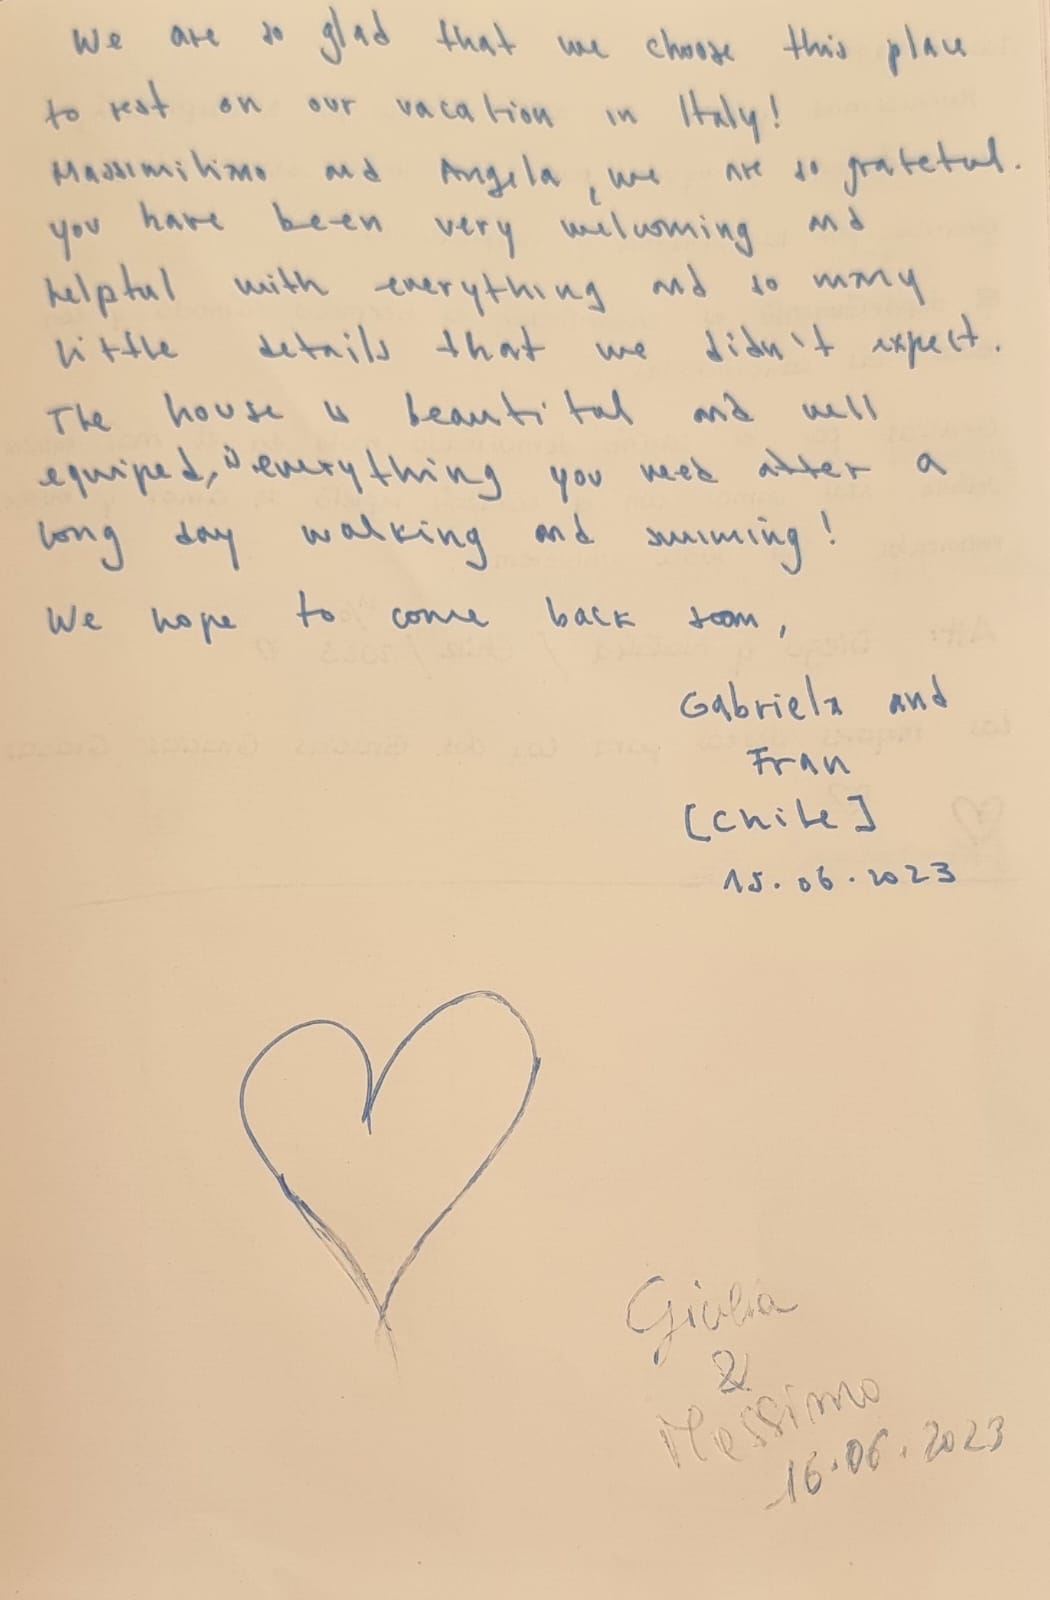 We are so glad that we choose this place
to rest on our vacation in Italy!
Massimiliano and Angela, we are so grateful.
you have been very welcoming and
helpful with everything and so many
little details that we didn't expect.
The house is beautiful and well
equiped, is everything you need after a
long day walking and swiming!
We hope to come back soon,
Gabriela and
Fran
[Chile]
15.06.2023
Giulia
&
Massimo
16.06.2023